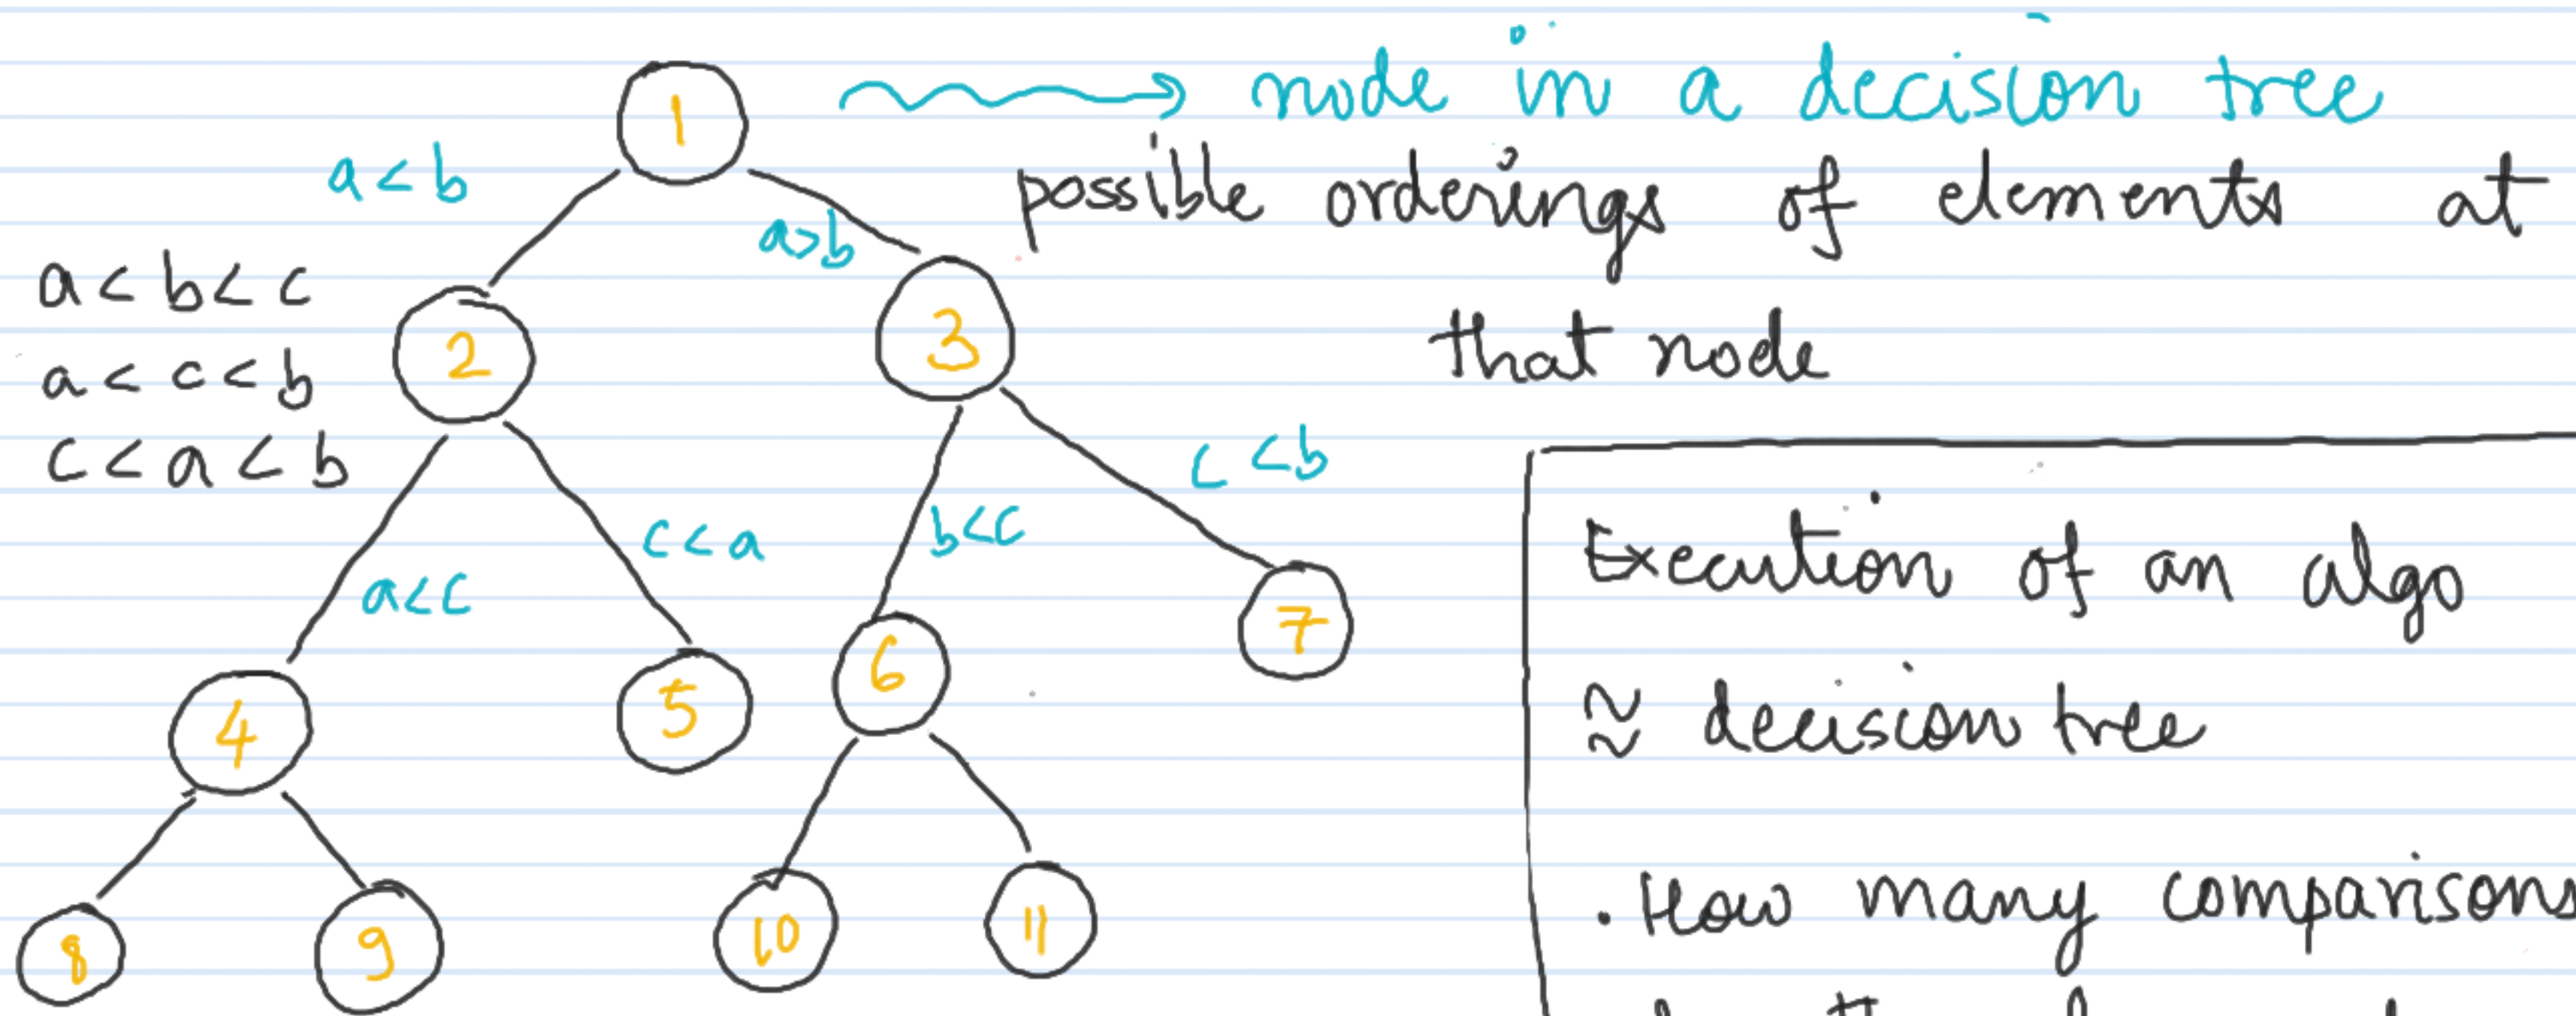 1
node in a decision tree
a < b
a > b
possible orderings of elements at
that node
a < b < c
a < c < b
c < a < b
2
3
a < c
c < a
b < c
c < b
4
5
6
7
8
9
10
11
Execution of an algo
≈ decision tree
. How many comparisons